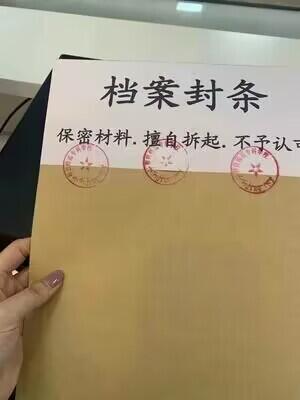 档案封条
保密材料.擅自拆起.不予认可